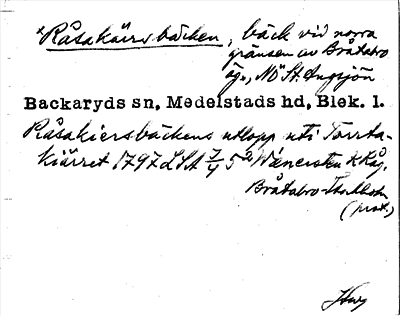 *Råsakärrsbäcken, bäck vid norra
gränsen av Bråtabro
äg., NÖ St. Angsjön
Backaryds sn, Medelstads hd, Blek. l.
Råsakiersbäckens utlopp uti Torrta-
kiärret 1797 LSA 7/4 5²
Bråtabro-
(prot.)